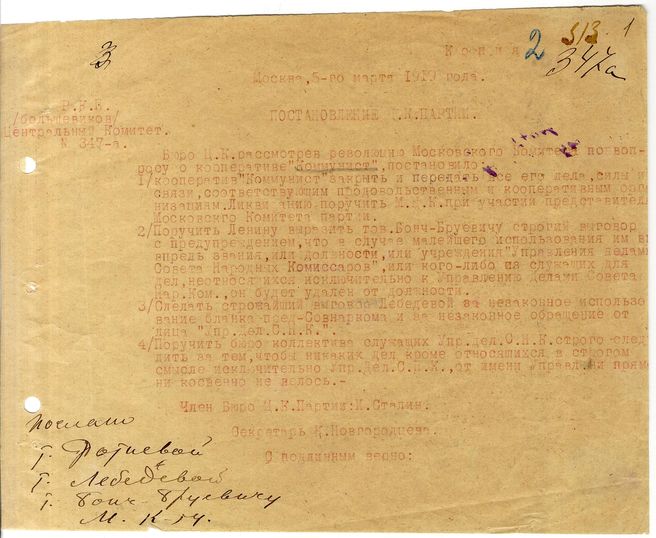 3
2 313. 1
347а
Копия
Москва, 5-го марта 1919 года.
Р.К.П.
/большевиков/
Центральный Комитет.
№ 347-а.
ПОСТАНОВЛЕНИЕ Ц.К.ПАРТИИ.
Бюро Ц.К.рассмотрев резолюцию Московского Комитета по воп-
росу о кооперативе "Коммунист", постановило:
1/кооператив "Коммунист" закрыть и передать все его дела, силы и
связи, соответствующим продовольственным и кооперативным орга
низациям. поручить М.К.при участии представителя
Московского Комитета партии.
2/Поручить Ленину выразить тов.Бонч-Бруевичу строгий выговор
с предупреждением, что в случае малейшего использования им вп
впредь звания, или должности, или учреждения "Управления делами
Совета Народных Комиссаров", или кого-либо из служащих для
дел, неотносящихся исключительно к Управлению Делами Совета
Нар.Ком., он будет удален от должности.
3/Сделать строжайший выговор Лебедевой за незаконное использо
вание бланка пред-Совнаркома и за незаконное обращение от
лица "Упр.Дел.С.Н.К.".
4/Поручить бюро коллектива служащих Упр.дел.С.Н.К.строго след
дить за тем, чтобы никаких дел кроме относящихся в строгом
смысле исключительно Упр.Дел.С.Н.К., от имени Управления прям
ни косвенно не велось.-
Член Бюро Ц.К.Партии:И.Сталин.
Секретарь К.Новгородцева.
С подлинным верно:
Послано
т. Лебедевой
т. Бонч-Бруевичу
М. К-ту.